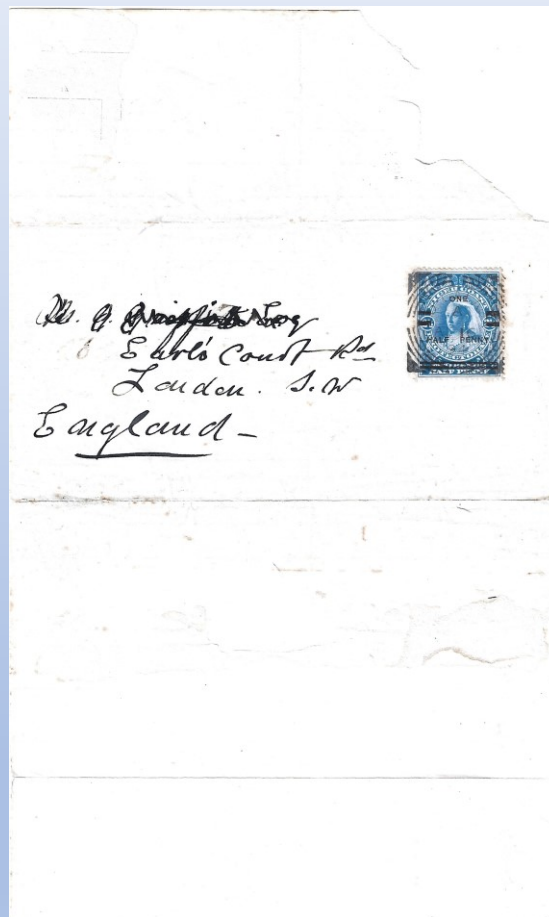 Earl's Court Rd
London. S.W
England -
ONE
HALF PENNY